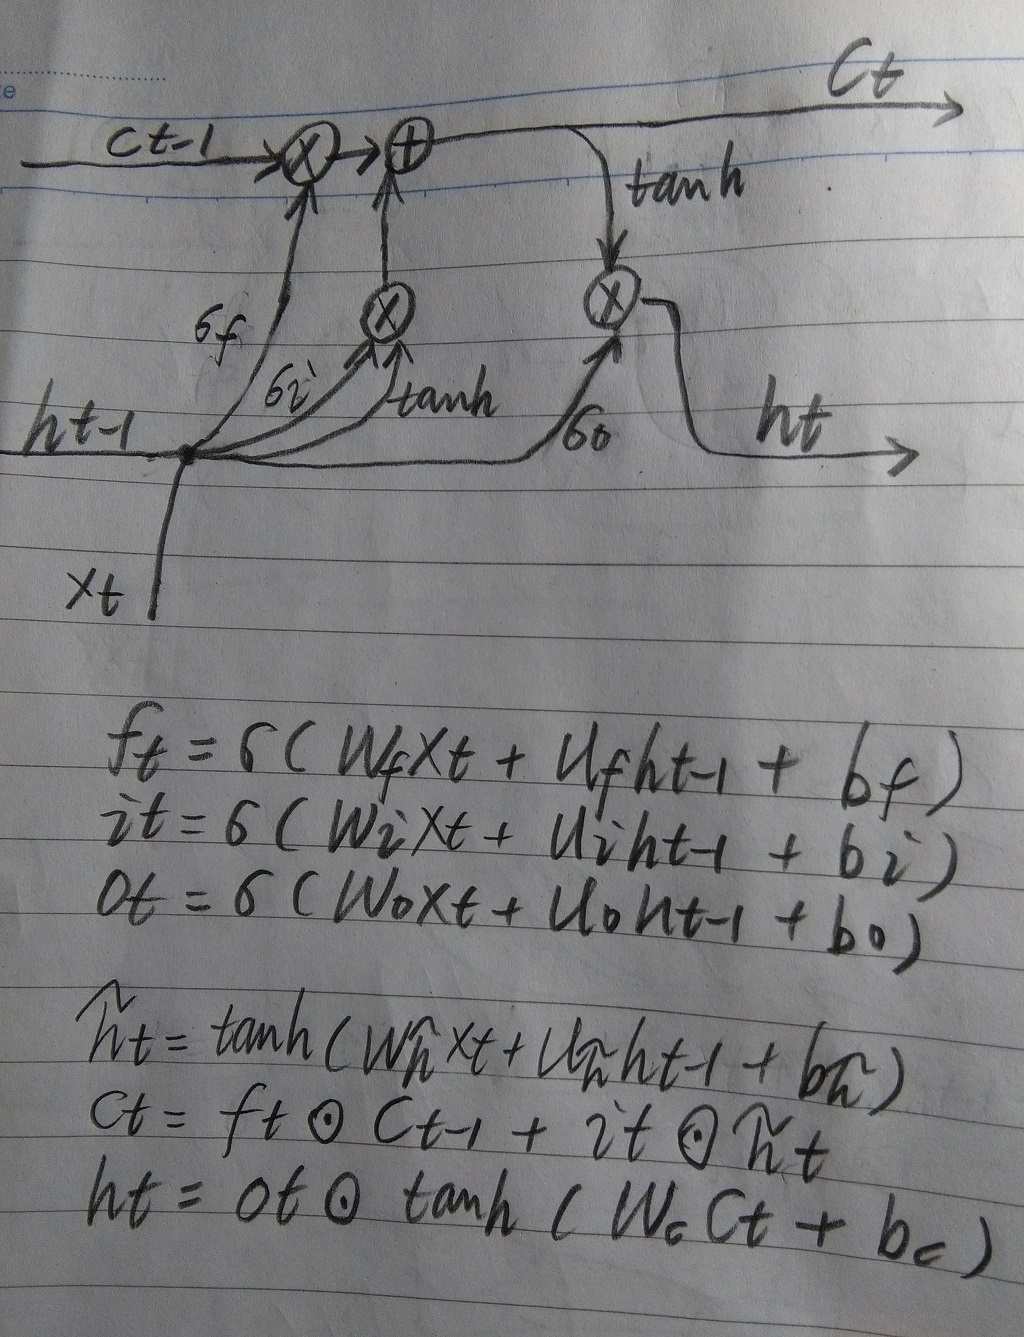 e
Ct
Ct-1
tanh
σf
σi
tanh
ht-1
σo
ht
xt
ft = σ ( Wf xt + Uf ht-1 + bf )
it = σ ( Wi xt + Ui ht-1 + bi )
ot = σ ( Wo xt + Uo ht-1 + bo )
h̃t = tanh ( Wh̃ xt + Uh̃ ht-1 + bh̃ )
Ct = ft ⊙ Ct-1 + it ⊙ h̃t
ht = ot ⊙ tanh ( Wc Ct + bc )